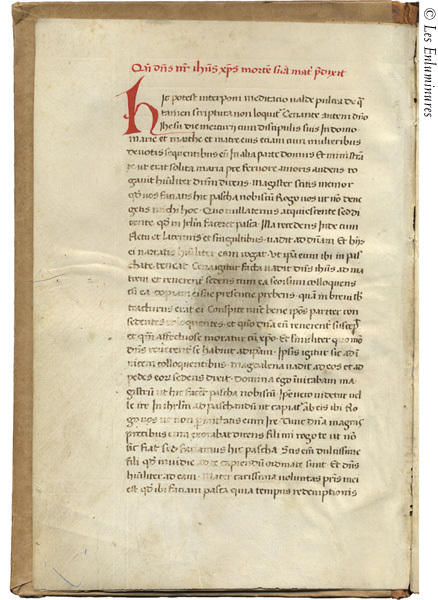 Qñ dñs nr̃ ihũs xp̃s mortẽ suã mat' p̃dixit
hic potest interponi meditacio valde pulcra de q̃
tamen scriptura non loquit'. Cenante autem dño
ihesu die mercurii cum discipulis suis in domo
marie et marthe et matre eius etiam cum mulieribus
devotis sequentibus eũ in alia parte domus et ministrã
te ut erat solita maria pre fervore amoris audens ro
gavit hũiliter dñm dicens. magister sitis memor
qđ vos faciatis hic pascha nobiscũ Rogo vos ut nõ dene
getis michi hoc. Quo nullatenus acquiescente sed di
cente qđ in ierl̃m faceret pasca. illa recedens inde cum
fletu et lacrimis et singultibus vadit ad dñam. Et hiis
ei narratis hũiliter eam rogat. ut ip̃a eum ibi in pas
chate teneat. Cena igitur facta vadit dñs ihũs ad ma
trem et reverent' sedens cum ea seorsum colloquens
cũ ea copiam ei sue presencie prebens. quam in brevi sb
tracturus erat ei Conspice nunc bene ip̃os pariter con
sedentes colloquentes. et quõ dña eũ reverent' suscep'
et cum affectuose moratur cũ xp̃o. Et similiter quomõ
dñs reverent' se habuit ad ip̃am. Ipsis igitur sic ad ĩ
vicem colloquentibus. magdalena vadit ad eos et ad
pedes eorũ sedens dixit. domina ego ĩvitabam ma
gistrũ ut hic faceret pascha nobiscũ. Ip̃e vero videtur vel
le ire in ihrl̃m ad paschandũ ut capiat' ab eis ibi Rogo
vos ut non p̃mittatis eum ire. Cui dña magnis
precibus eum exorabat dicens fili mi rogo te ut nõ
sic fiat sed faciamus hic pascha Scis eñ dulcissime
fili qđ insidie ad te capiendũ ordinate sunt. Et dñs
hũiliter ad eam. Mater carissima voluntas pr̃is mei
est qđ ibi faciam pasca quia tempus redemptionis
© Les Enluminures